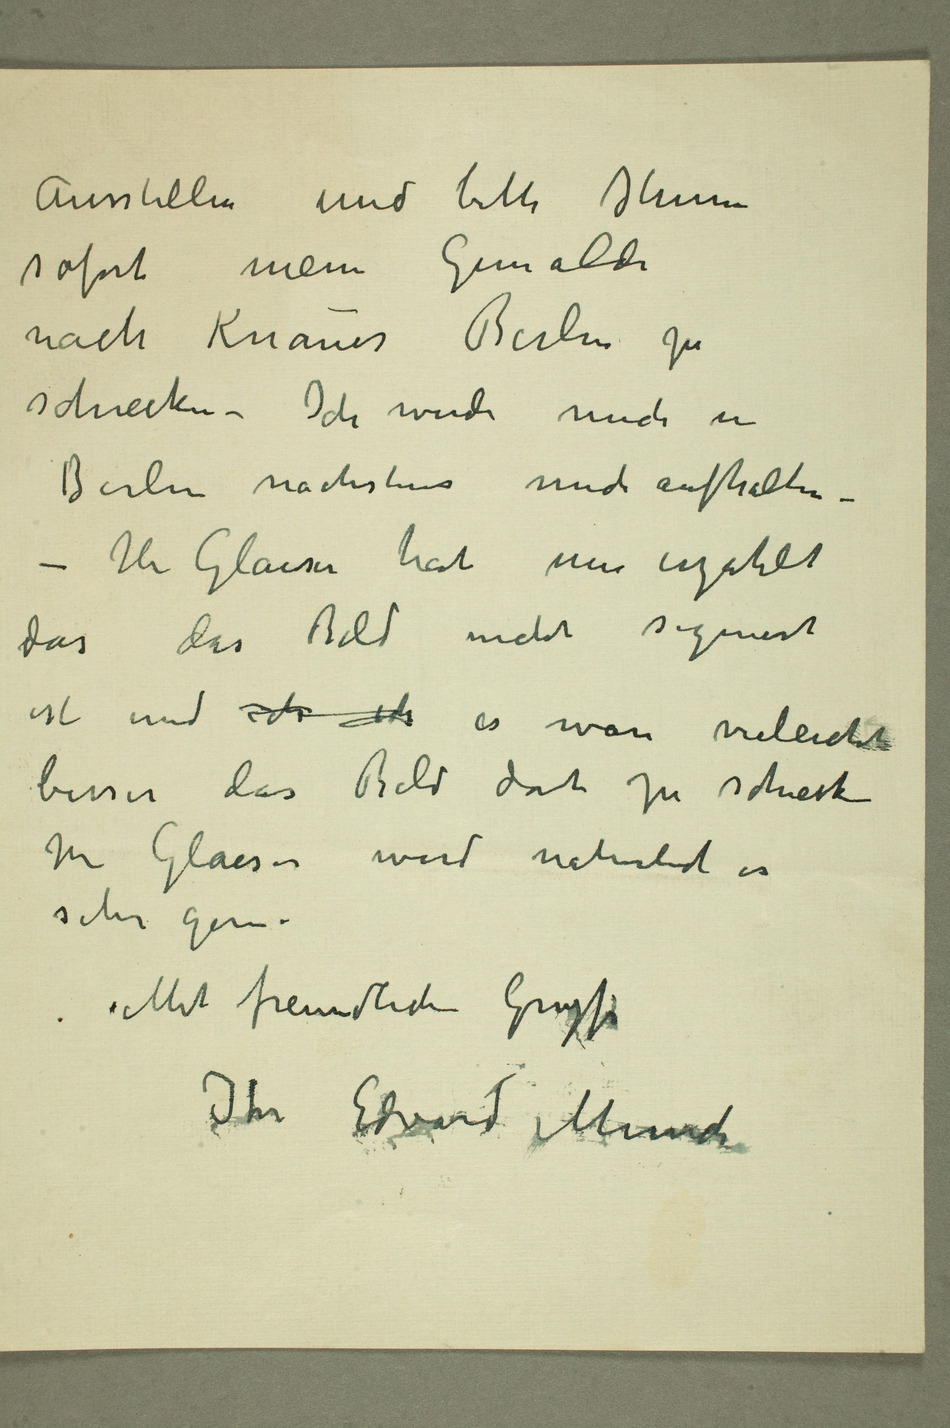 Ausstellen und bitte Ihnen
sofort mein Gemälde
nach Knaūer Berlin zu
schiecken – Ich werde mich in
Berlin nächstens mich aufhalten –
– Hr Glaeser hat mir erzählt
das das Bild nicht signiert
ist und es wäre vieleicht
besser das Bild dort zu schieck
Hr Glaeser wird naturlich es
sehr gern.
Mit freundlichen Gruss
Ihr Edvard Munch